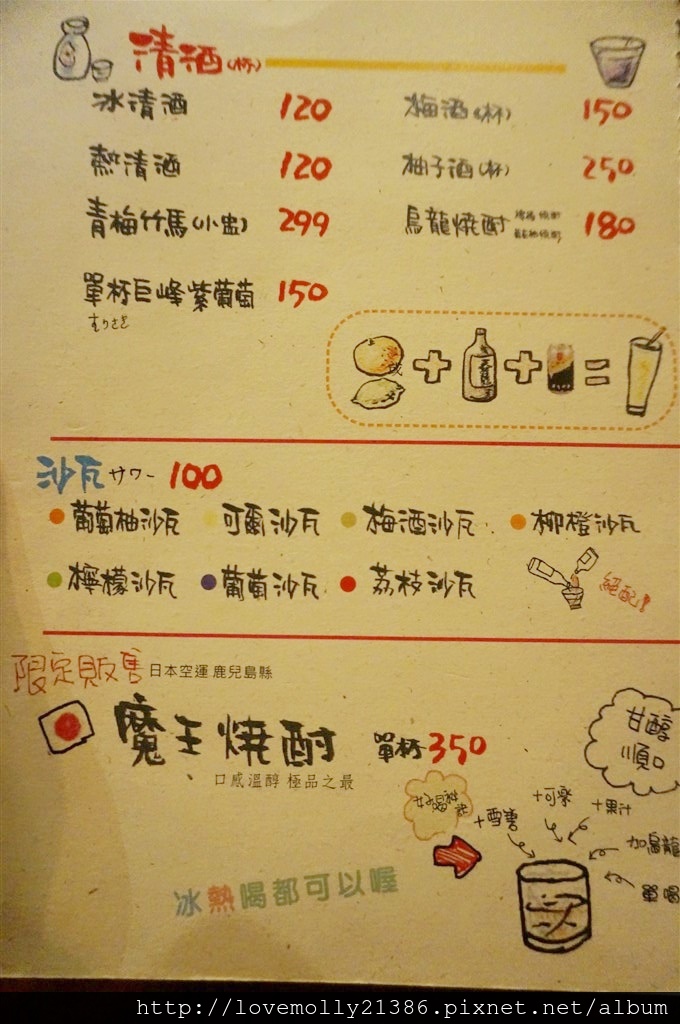 清酒(杯)
冰清酒 120
梅酒(杯) 150
熱清酒 120
柚子酒(杯) 250
青梅竹馬(小盅) 299
烏龍燒酎 180
單杯巨峰紫葡萄 150
或
沙瓦 サワー 100
葡萄柚沙瓦 可爾沙瓦 梅酒沙瓦 柳橙沙瓦
檸檬沙瓦 葡萄沙瓦 荔枝沙瓦
絕配!
限定販售 日本空運 鹿兒島縣
魔王燒酎 單杯 350
口感溫醇 極品之最
甘醇
順口
+雪碧
+可樂
+果汁
加烏龍
單喝
冰熱喝都可以喔
http://lovemolly21386.pixnet.net/album